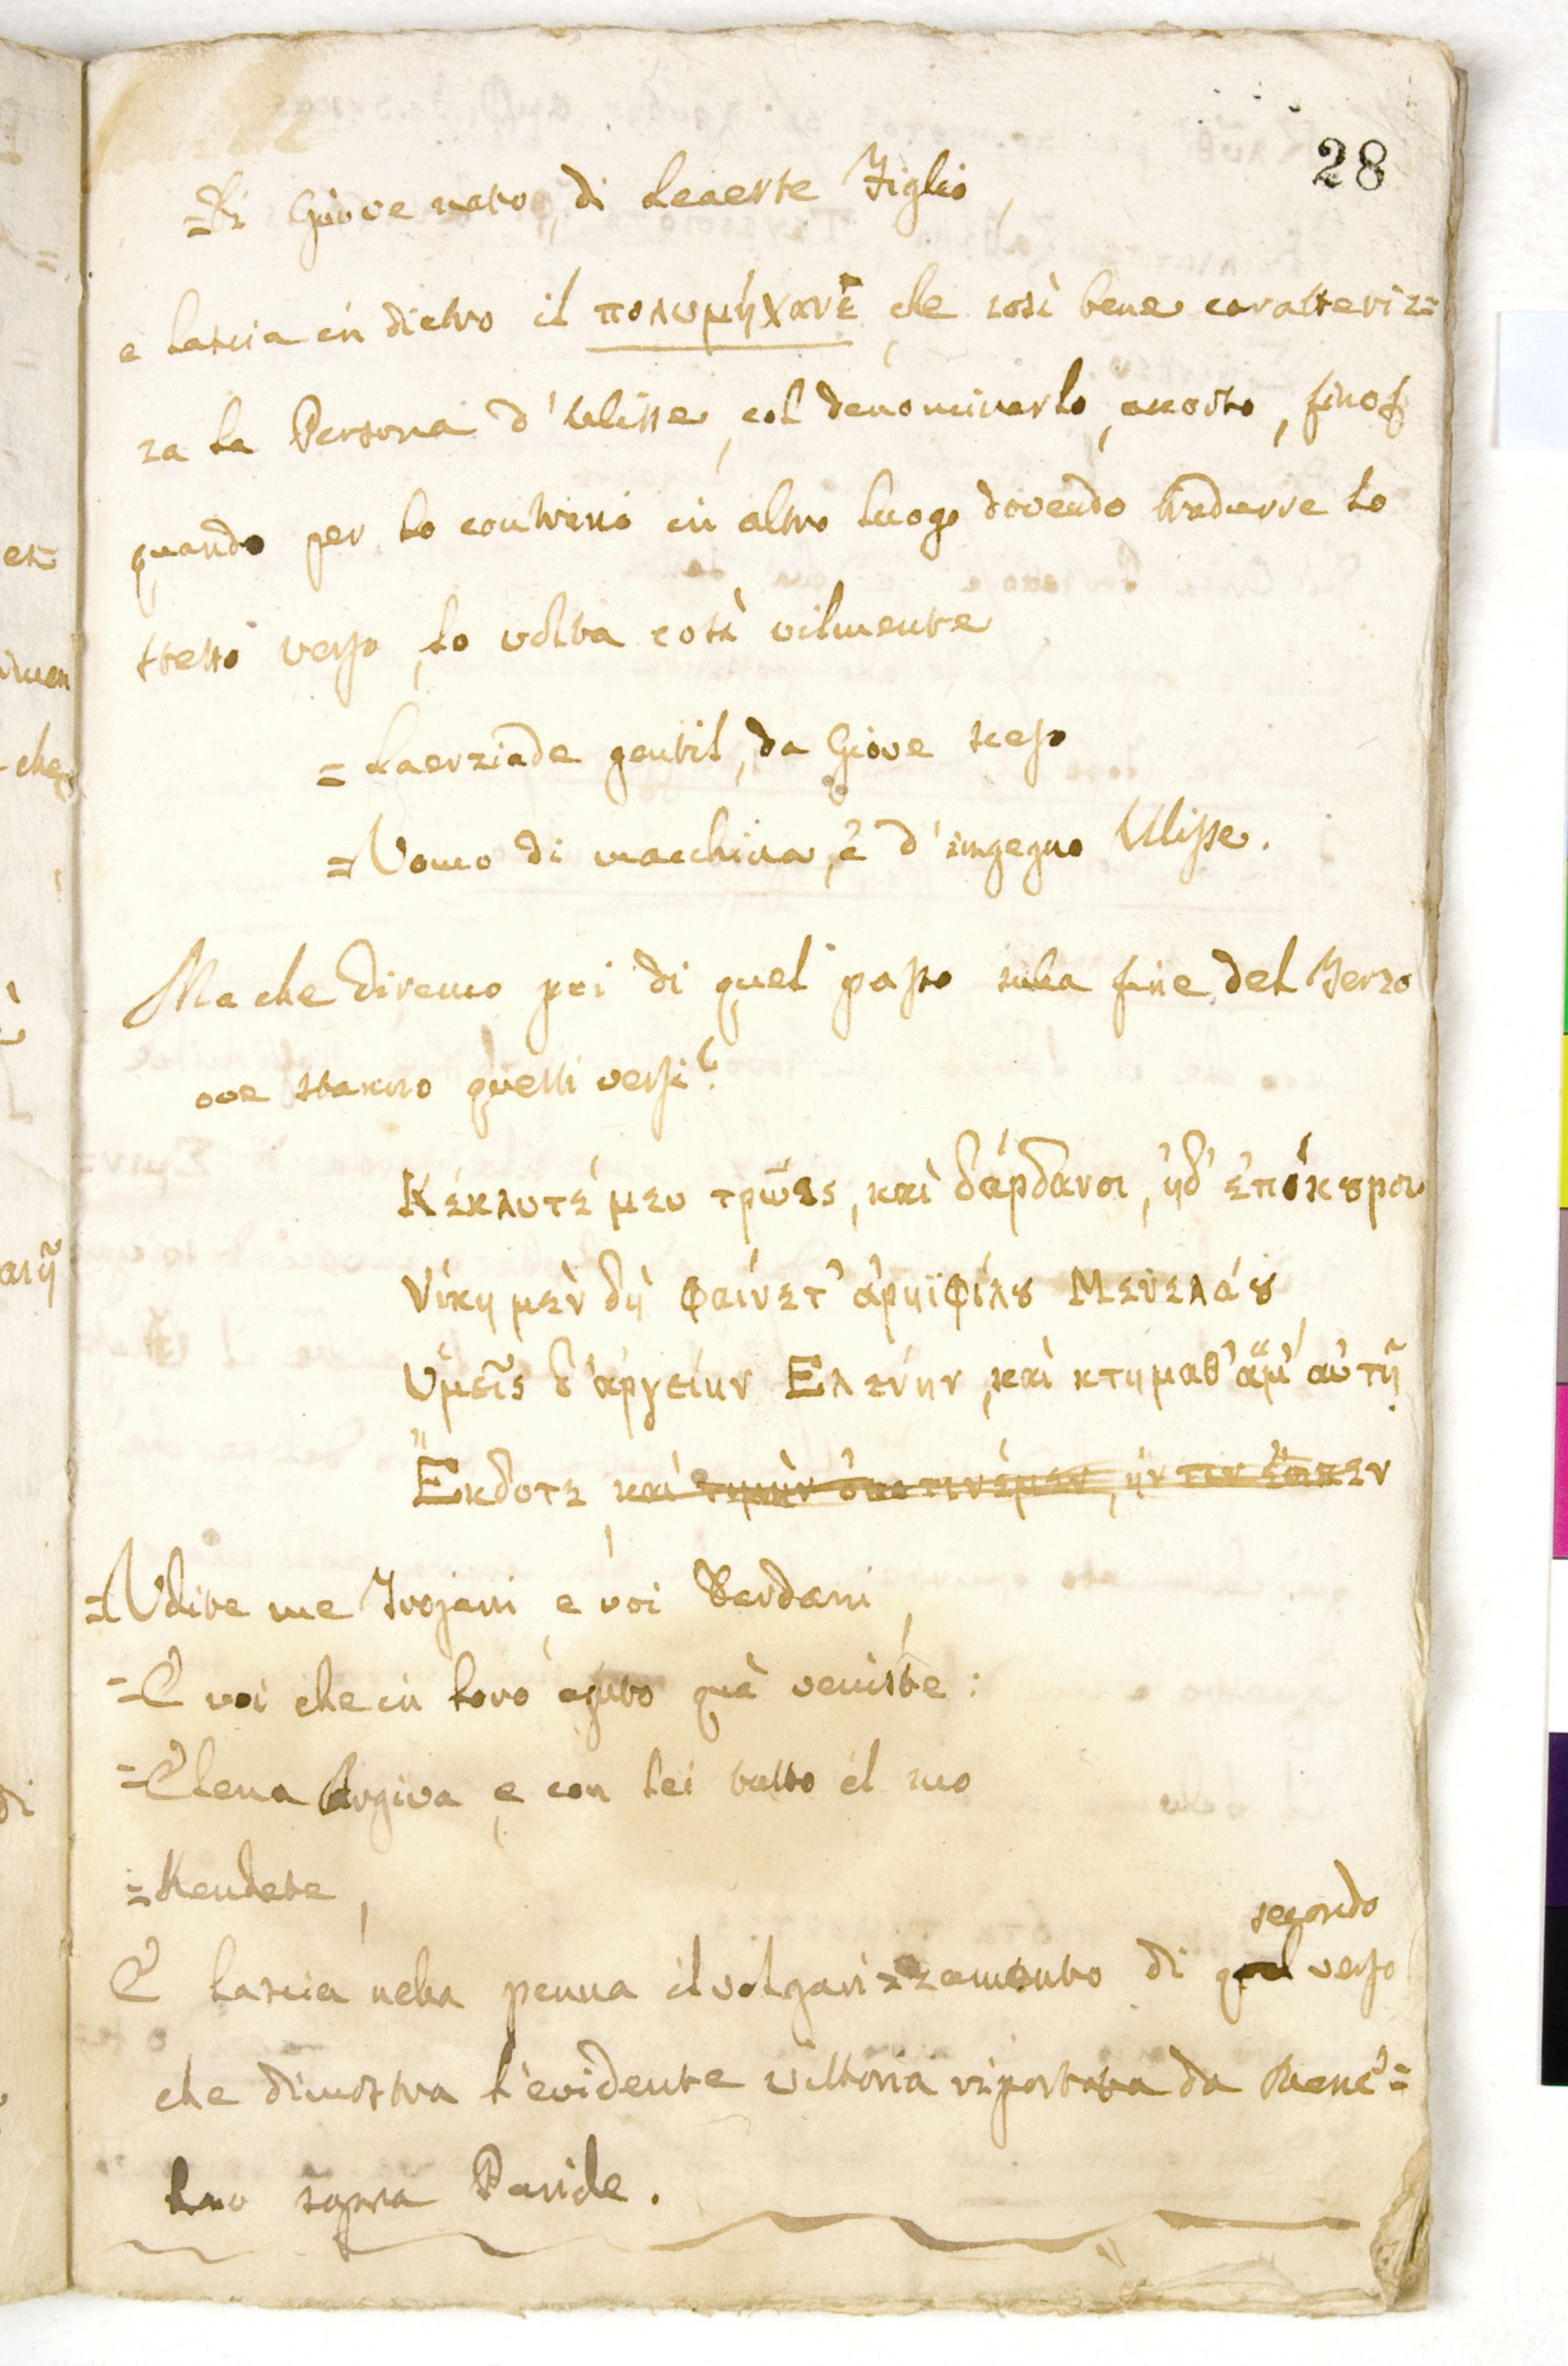 28
=Di Giove nato, di Leaerte Figlio,
e lascia in dietro il πολυμήχανε che così bene caratteriz=
za la Persona d'Ulisse, col denominarlo, accorto,
quando per lo contrario in altro luogo dovendo tradurre lo
stesso verso, lo volta così vilmente
= Laerziade gentil, da Giove sceso
= Vomo di macchina, e d'ingegno Ulisse.
Ma che diremo poi di quel passo sulla fine del Terzo
ove stanno questi versi?
Κέκλυτέ μευ τρῶες, καὶ δάρδανοι, ἠδ' ἐπίκȣροι
Νίκη μὲν δὴ φαίνετ' ἀρηϊφίλȣ Μενελάȣ
Ὑμεῖς δ' ἀργείην Ελένην, καὶ κτημαθ' ἅμ' αὐτῇ
Ἔκδοτε, καὶ τιμὴν ἀποτινέμεν, ἥν τιν ἔοικεν
=Udite me Trojani, e voi Dardani,
=E voi che in loro ajuto quà veniste:
=Elena Argiva, e con lei tutto il suo
=Rendete,
secondo
E lascia nella penna il volgarizzamento di quel verso
che dimostra l'evidente vittoria riportata da Mene=
lao sopra Paride.